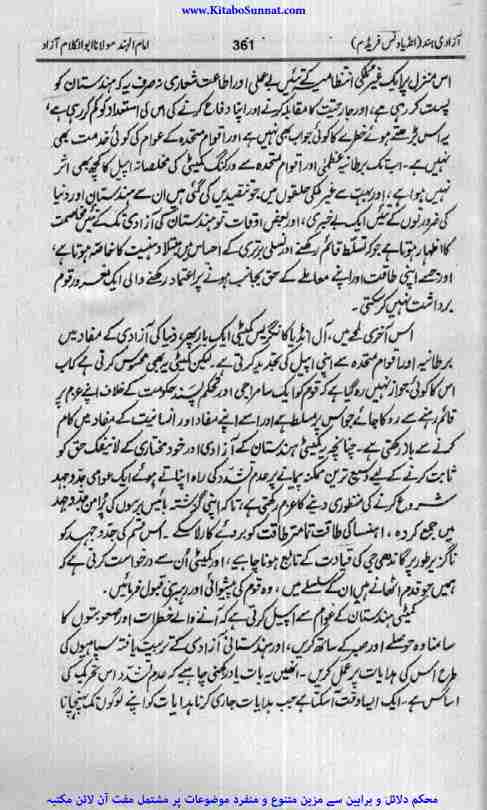 www.KitaboSunnat.com
آزادی ہند (انڈیا ونس فریڈم) 361 امام الہند مولانا ابوالکلام آزاد
اس منزل پر ایک غیر ملکی انتظامیہ کے تئیں بے عملی اور اطاعت شعاری نہ صرف یہ کہ ہندستان کو
پست کر رہی ہے، اور جارحیت کا مقابلہ کرنے اور اپنا دفاع کرنے کی اس کی استعداد کو کم کر رہی ہے،
یہ اس بڑھتے ہوئے خطرے کا کوئی جواب بھی نہیں ہے اور اقوام متحدہ کے عوام کی کوئی خدمت بھی
نہیں ہے۔ اب تک برطانیہ عظمیٰ اور اقوام متحدہ سے ورکنگ کمیٹی کی مخلصانہ اپیل کا کچھ بھی اثر
نہیں ہوا ہے، اور بہت سے غیر ملکی حلقوں میں، جو تنقیدیں کی گئی ہیں ان سے ہندستان اور دنیا
کی ضرورتوں کے تئیں ایک بے خبری، اور بعض اوقات تو ہندستان کی آزادی تک کے تئیں مخاصمت
کا اظہار ہوتا ہے جو کہ تسلط قائم رکھنے اور نسلی برتری کے احساس میں مبتلا ذہنیت کا خاصہ ہوتا ہے،
اور جسے اپنی طاقت اور اپنے معاملے کے حق بجانب ہونے پر اعتماد رکھنے والی ایک مغرور قوم
برداشت نہیں کر سکتی۔
اس آخری لمحے میں، آل انڈیا کانگریس کمیٹی ایک بار پھر، دنیا کی آزادی کے مفاد میں
برطانیہ اور اقوام متحدہ سے اپنی اپیل کی تجدید کرتی ہے۔ لیکن کمیٹی یہ بھی محسوس کرتی ہے کہ اب
اس کا کوئی جواز نہیں رہ گیا ہے کہ قوم کو ایک سامراجی اور تحکم پسند حکومت کے خلاف اپنے عزم پر
قائم رہنے سے روکا جائے جو اس پر مسلط ہے اور اسے اپنے مفاد اور انسانیت کے مفاد میں کام
کرنے سے باز رکھتی ہے۔ چنانچہ یہ کمیٹی ہندستان کے آزادی اور خود مختاری کے لاینفک حق کو
ثابت کرنے کے لیے وسیع ترین ممکنہ پیمانے پر عدم تشدد کی راہ اپناتے ہوئے ایک عوامی جدوجہد
شروع کرنے کی منظوری دینے کا عزم رکھتی ہے، تاکہ اپنی گزشتہ بائیس برسوں کی پُرامن جدوجہد
میں جمع کردہ، اہنسا کی طاقت تمام تر طاقت کو بروئے کار لا سکے۔ اس قسم کی جدوجہد کو
ناگزیر طور پر گاندھی جی کی قیادت کے تابع ہونا چاہیے، اور کمیٹی اُن سے درخواست کرتی ہے کہ
ہمیں جو قدم اٹھانے ہیں ان کے سلسلے میں، وہ قوم کی پیشوائی اور رہبری قبول فرمائیں۔
کمیٹی ہندستان کے عوام سے اپیل کرتی ہے کہ آنے والے خطرات اور صعوبتوں کا
سامنا وہ حوصلے اور صبر کے ساتھ کریں، اور ہندستانی آزادی کے تربیت یافتہ سپاہیوں کی
طرح اُس کی ہدایات پر عمل کریں۔ انھیں یہ بات یاد رکھنی چاہیے کہ عدم تشدد اس تحریک کی
اساس ہے۔ ایک ایسا وقت آ سکتا ہے جب ہدایات جاری کرنا یا ہدایات کو اپنے لوگوں تک پہنچانا
محکم دلائل و براہین سے مزین متنوع و منفرد موضوعات پر مشتمل مفت آن لائن مکتبہ